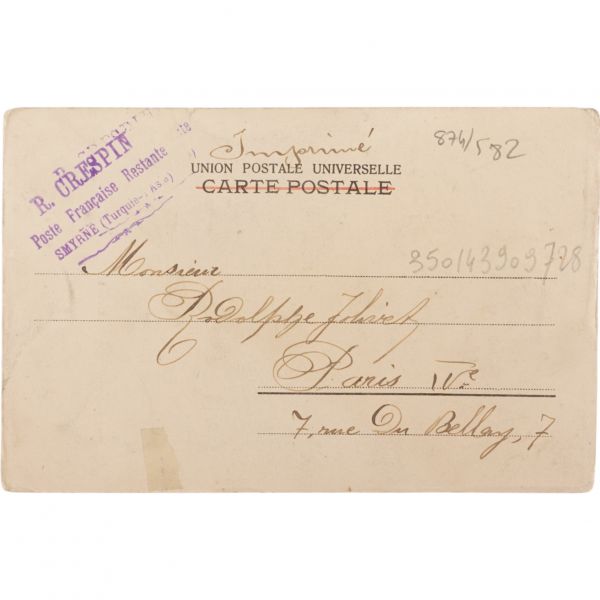 R. CRESPIN
Poste Française Restante
SMYRNE (Turquie-d'Asie)
Imprimé
874/582
UNION POSTALE UNIVERSELLE
CARTE POSTALE
350143909728
Monsieur
Rodolphe Jolivet
Paris IVe.
7, rue Du Bellay, 7